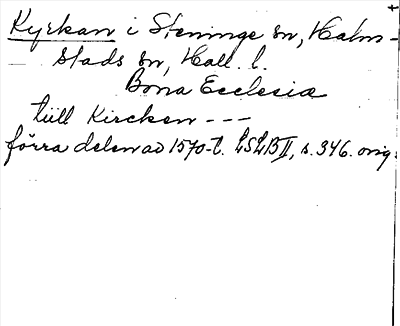 Kyrkan i Steninge sn, Halm-
stads sn, Hall. l.
Bona Ecclesia
tüll Kircken ---
förra delen av 1570-t. LSLB II, s. 346. orig.